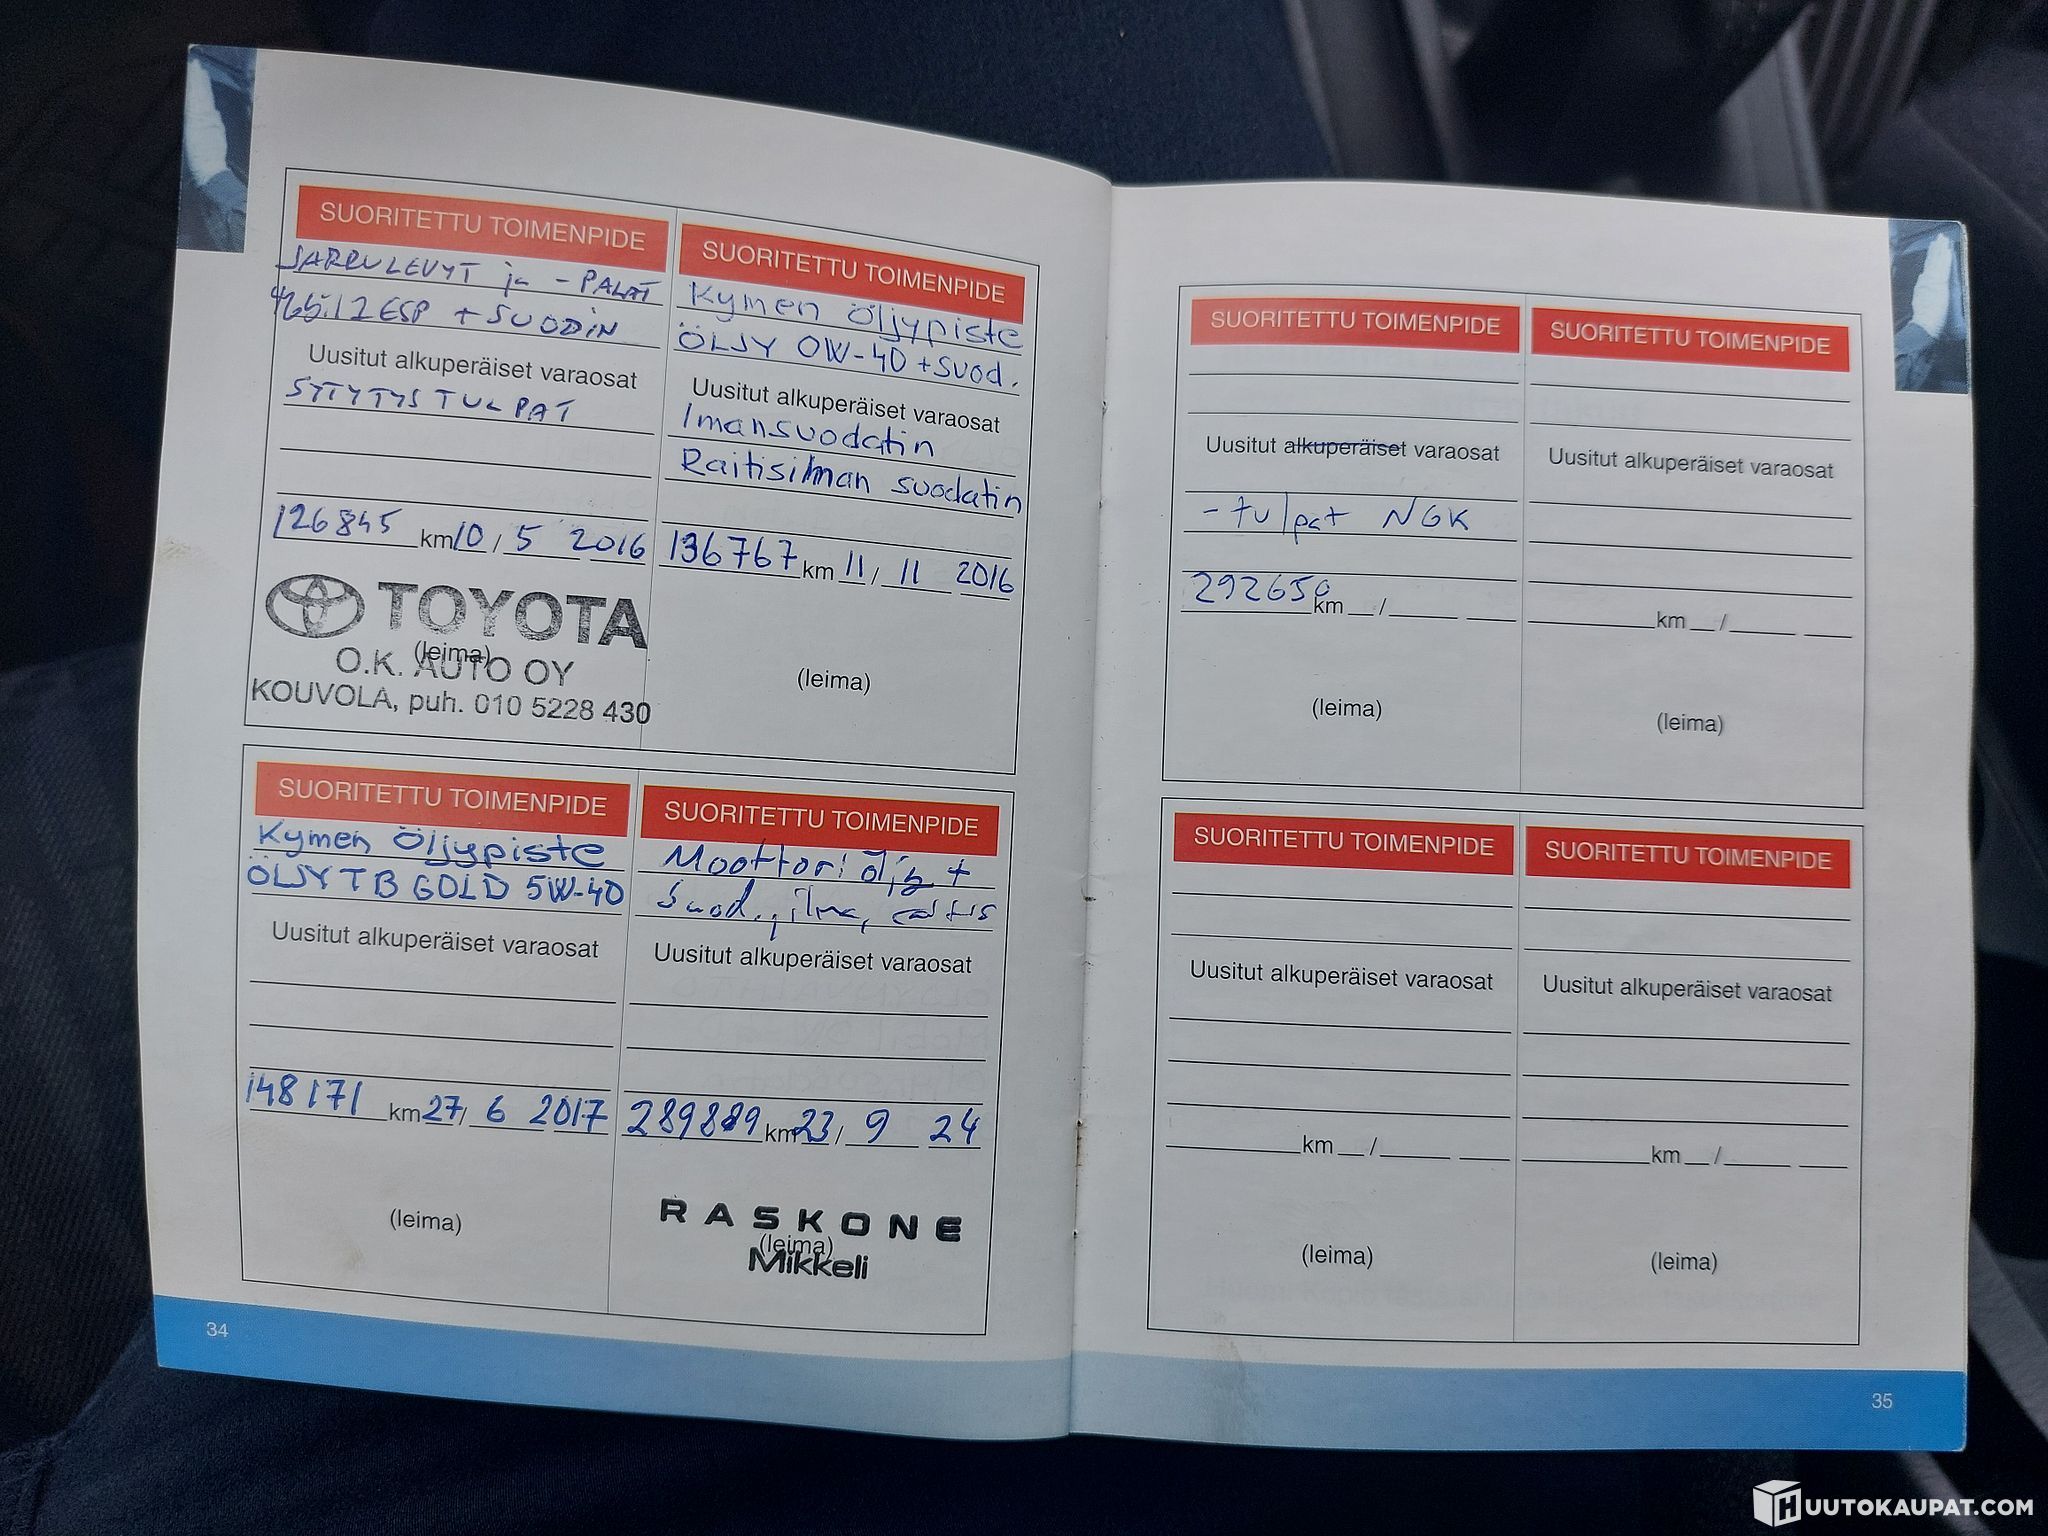 SUORITETTU TOIMENPIDE
JARRULEVYT ja - PALAT
ESP + SUODIN
Uusitut alkuperäiset varaosat
SYTYTYSTULPAT
126845 km 10 / 5 2016
TOYOTA
(leima)
O.K. AUTO OY
KOUVOLA, puh. 010 5228 430
SUORITETTU TOIMENPIDE
Kymen Öljypiste
ÖLJY 0W-40 + suod.
Uusitut alkuperäiset varaosat
Imansuodatin
Raitisilman suodatin
136767 km 11 / 11 2016
(leima)
SUORITETTU TOIMENPIDE
Kymen Öljypiste
ÖLJY TB GOLD 5W-40
Uusitut alkuperäiset varaosat
148171 km 27 / 6 2017
(leima)
SUORITETTU TOIMENPIDE
Moottori öljy +
Suod., ilma,
Uusitut alkuperäiset varaosat
289889 km 23 / 9 24
RASKONE
(leima)
Mikkeli
34
SUORITETTU TOIMENPIDE
Uusitut alkuperäiset varaosat
- tulpat NGK
292650 km /
(leima)
SUORITETTU TOIMENPIDE
Uusitut alkuperäiset varaosat
km /
(leima)
SUORITETTU TOIMENPIDE
Uusitut alkuperäiset varaosat
km /
(leima)
SUORITETTU TOIMENPIDE
Uusitut alkuperäiset varaosat
km /
(leima)
35
HUUTOKAUPAT.COM